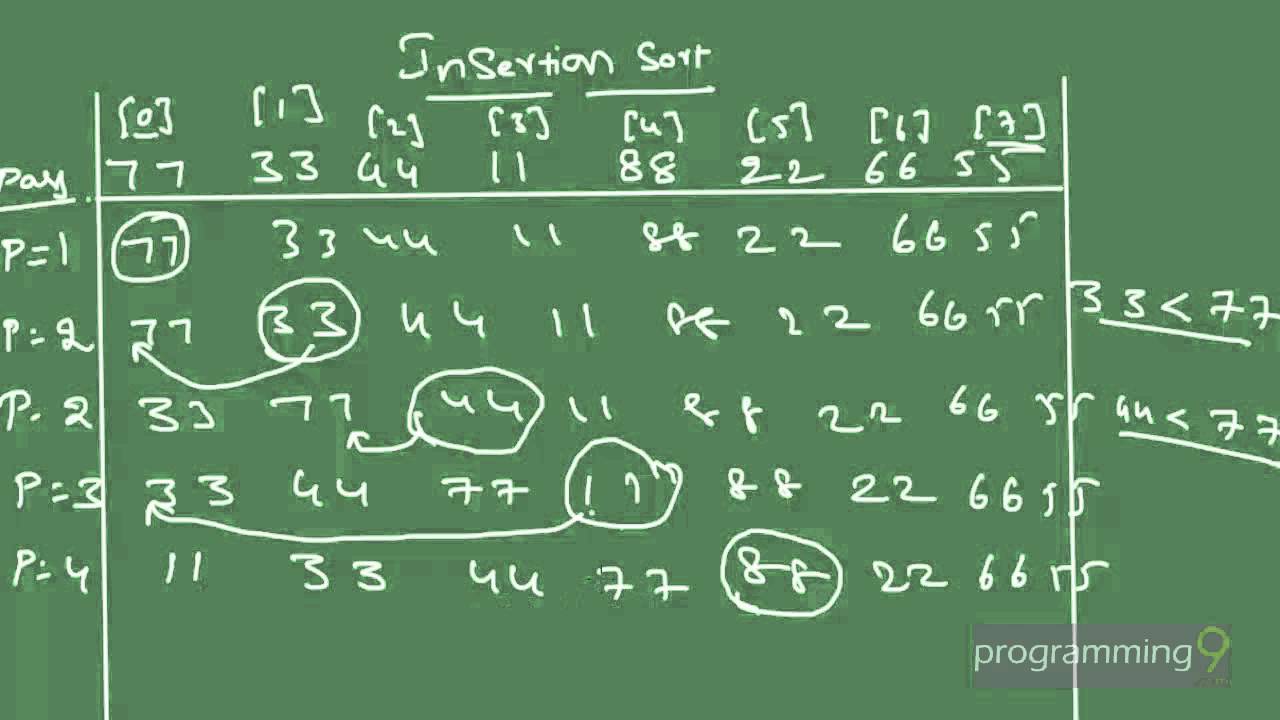 Insertion Sort
[0] [1] [2] [3] [4] [5] [6] [7]
Pass 77 33 44 11 88 22 66 55
P=1 77 33 44 11 88 22 66 55
P=2 77 33 44 11 88 22 66 55 33<77
P=2 33 77 44 11 88 22 66 55 44<77
P=3 33 44 77 11 88 22 66 55
P=4 11 33 44 77 88 22 66 55
programming9
.com